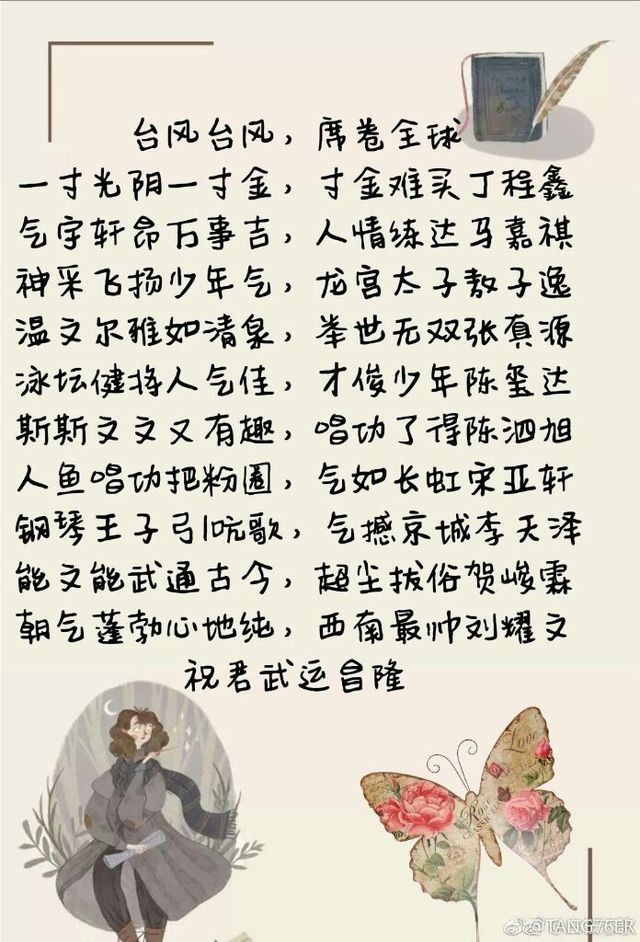 台风台风，席卷全球
一寸光阴一寸金，寸金难买丁程鑫
气宇轩昂万事吉，人情练达马嘉祺
神采飞扬少年气，龙宫太子敖子逸
温文尔雅如清泉，举世无双张真源
泳坛健将人气佳，才俊少年陈玺达
斯斯文文又有趣，唱功了得陈泗旭
人鱼唱功把粉圈，气如长虹宋亚轩
钢琴王子引吭歌，气撼京城李天泽
能文能武通古今，超尘拔俗贺峻霖
朝气蓬勃心地纯，西南最帅刘耀文
祝君武运昌隆
Love
Rose